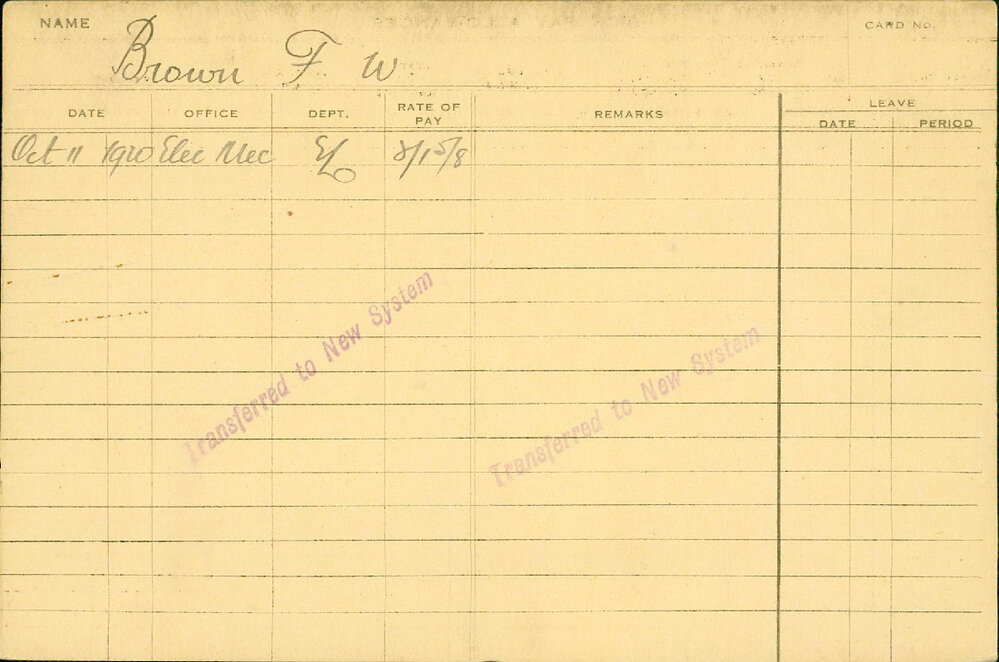 NAME
CARD NO.
Brown F W
DATE OFFICE DEPT. RATE OF PAY REMARKS LEAVE
DATE PERIOD
Oct 11 1920 Elec Mec
Transferred to New System
Transferred to New System